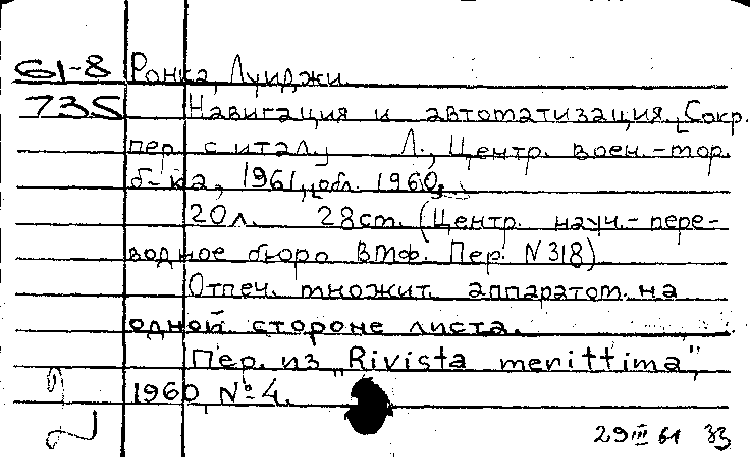 61-8 Ронка, Луиджи
735 Навигация и автоматизация. [Сокр.
пер. с итал.] Л., Центр. воен.-мор.
б-ка, 1961, [обл. 1960].
20 л. 28 см. (Центр. науч.-пере-
водное бюро ВМФ. Пер. N 318)
Отпеч. множит. аппаратом. на
одной стороне листа.
Пер. из „Rivista merittima",
1960, № 4.
29 III 61 33